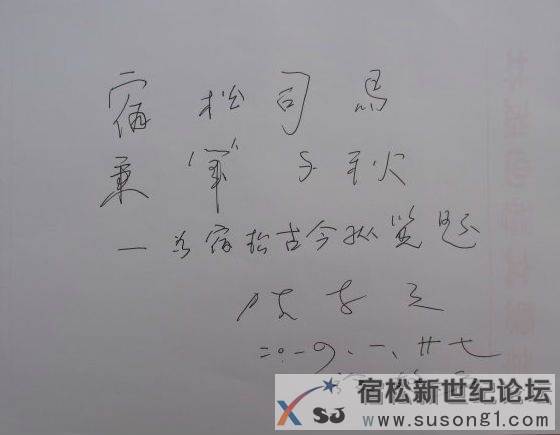 宿松司馬
秉“筆”千秋
—为宿松古今纵览题
二〇一九、一、廿七
宿松新世纪论坛
XSJ www.susong1.com